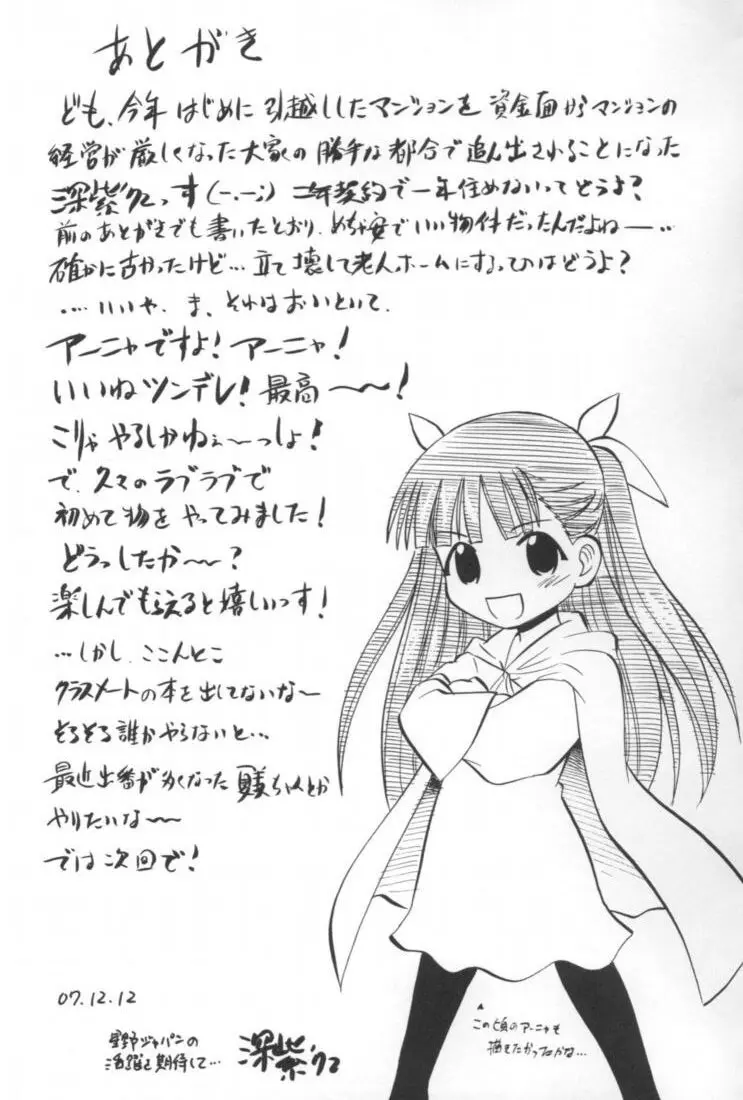 あとがき
ども、今年はじめに引越ししたマンションを資金面からマンションの
経営が厳しくなった大家の勝手な都合で追ん出されることになった
深紫クロっす(-.-;) 二年契約で一年住めないってどうよ?
前のあとがきでも書いたとおり、めちゃ安でいい物件だったんだよねー…
確かに古かったけど…立て壊して老人ホームにするってのはどうよ?
……いいや、ま、それはおいといて、
アーニャですよ!アーニャ!
いいねツンデレ!最高〜〜!
こりゃやるしかねぇ〜っしょ!
で、久々のラブラブで
初めて物をやってみました!
どうっしたか〜〜?
楽しんでもらえると嬉しいっす!
…しかし、ここんとこ
クラスメートの本を出してないな〜
そろそろ誰かやらないと…
最近出番が多くなった ちゃんとか
やりたいな〜〜
では次回で!
07.12.12
星野ジャパンの
活躍を期待して…
深紫クロ
この頃のアーニャも
描きたかったかな…